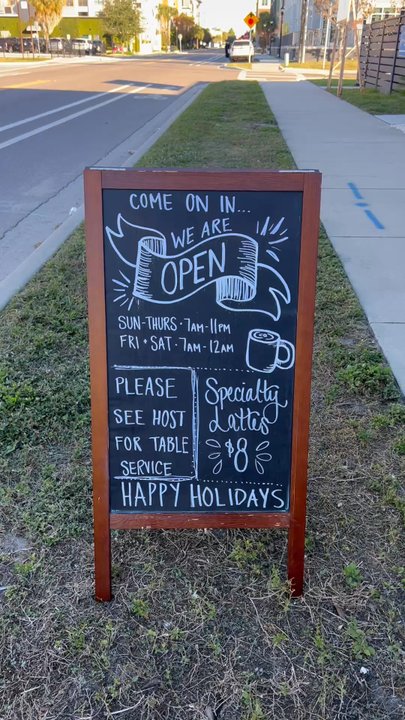 COME ON IN...
WE ARE
OPEN
SUN-THURS • 7AM-11PM
FRI + SAT • 7AM-12AM
PLEASE
SEE HOST
FOR TABLE
SERVICE
Specialty
Lattes
$8
HAPPY HOLIDAYS